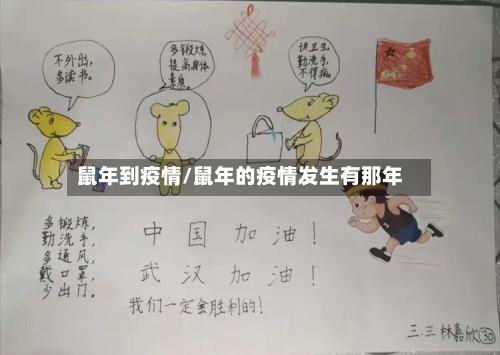 不外出，
多读书。
多锻炼，
提高身体
素质。
讲卫生，
勤洗手，
不得病。
鼠年到疫情/鼠年的疫情发生有那年
多锻炼，
勤洗手，
多通风，
戴口罩，
少出门。
中国加油！
武汉加油！
我们一定会胜利的！
三.三林嘉欣㉚